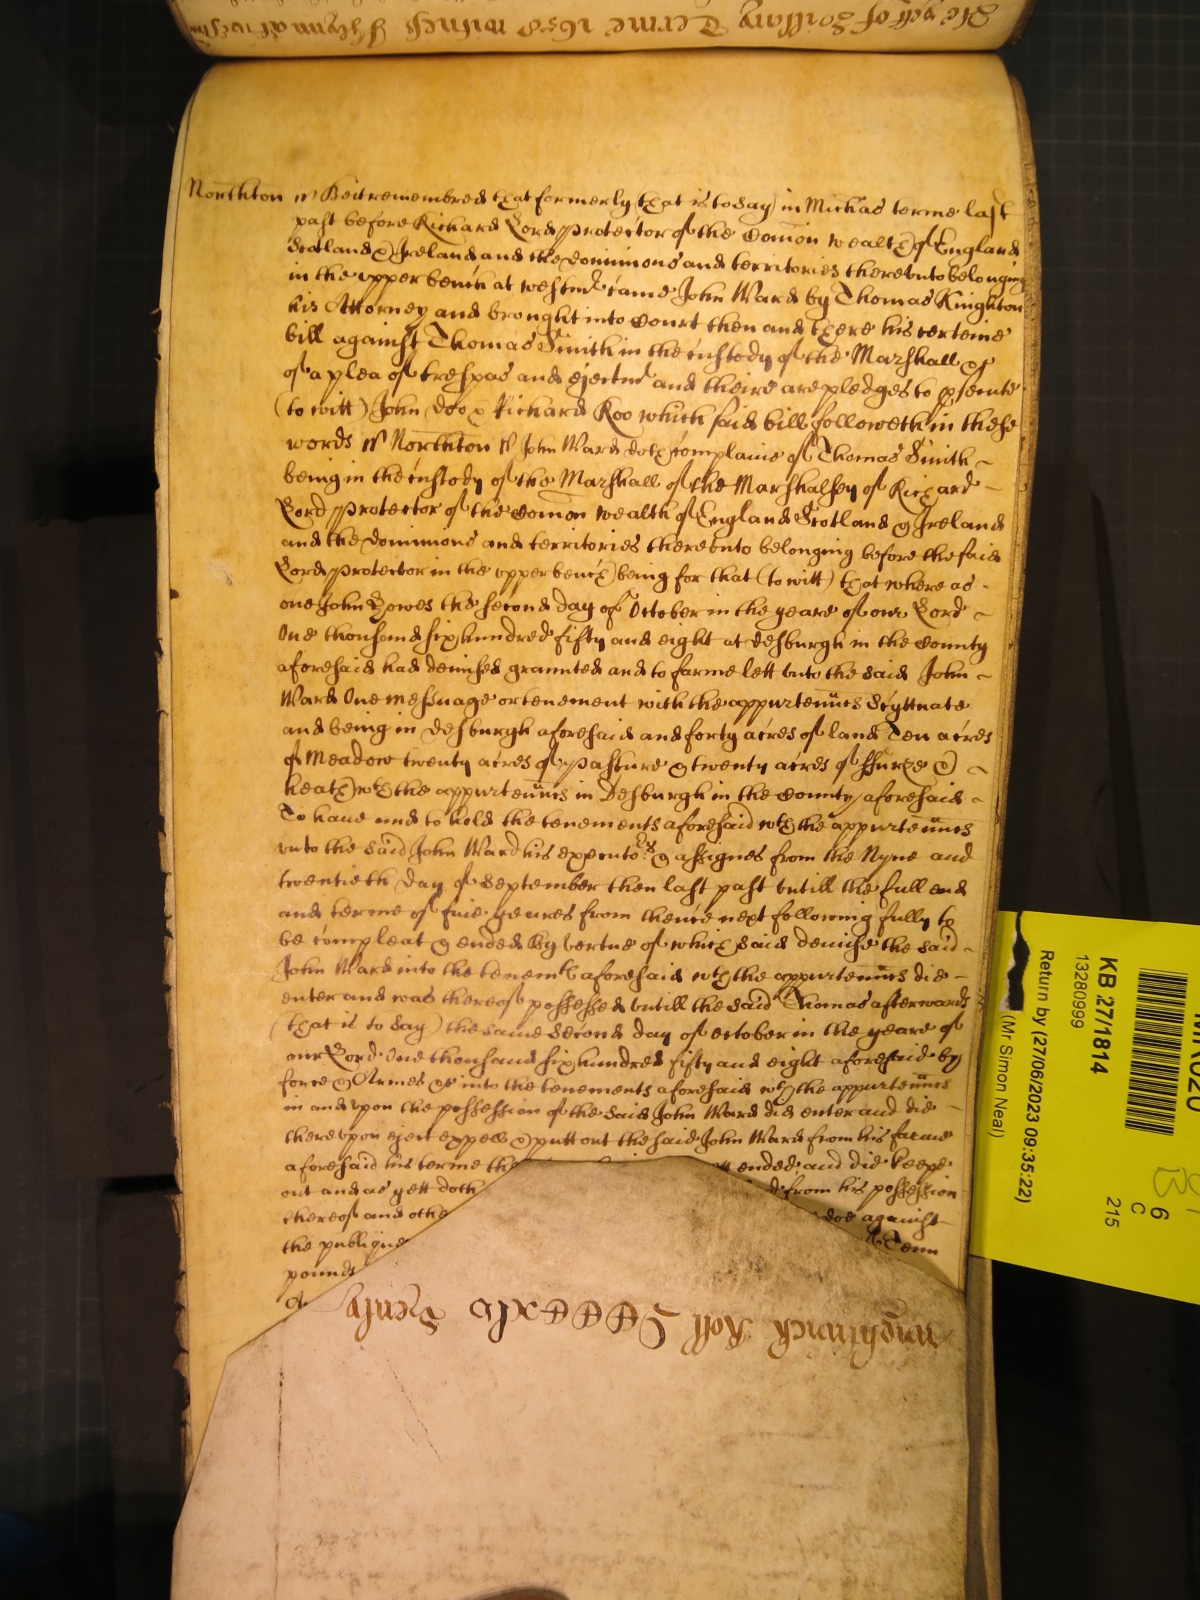 the yeare of Hillary Terme 1658 witnes
Northton ss Beit remembred that formerly (that is to say) in Michas terme last
past before Richard Lord Protector of the Comon wealth of England
Scotland & Ireland and the dominions and territories thereunto belonging
in the upper bench at westmr came John Ward by Thomas Knighton
his Attorney and brought into Court then and there his certeine
bill against Thomas Smith in the custody of the Marshall &c
of a plea of trespas and ejectmt and theire are pledges to psecute
(to witt) John doo & Richard Roo which said bill followeth in these
words ss Northton ss John Ward doth complaine of Thomas Smith
being in the custody of the Marshall of the Marshalsey of Richard
Lord Protector of the Comon wealth of England Scotland & Ireland
and the dominions and territories thereunto belonging before the said
Lord Protector in the upper bench being for that (to witt) that where as
one John Bowes the second day of October in the yeare of our Lord
One thousand six hundred fifty and eight at Desburgh in the County
aforesaid had demised graunted and to farme lett unto the said John
Ward One messuage or tenement with the appurtenncs Scyttuate
and being in Desburgh aforesaid and forty acres of land Ten acres
of Meadow twenty acres of pasture & twenty acres of ffurze &
heath wth the appurtenncs in Desburgh in the County aforesaid
To have and to hold the tenements aforesaid wth the appurtenncs
unto the said John Ward his executors & assignes from the Nyne and
twentieth day of September then last past untill the full end
and terme of five yeares from thence next following fully to
be compleat & ended By vertue of which said demise the said
John Ward into the tenemts aforesaid wth the appurtenncs did
enter and was thereof possessed untill the said Thomas afterwards
(that is to say) the same second day of October in the yeare of
our Lord One thousand six hundred fifty and eight aforesaid by
force & Armes &c into the tenements aforesaid wth the appurtenncs
in and upon the possession of the said John Ward did enter and did
thereupon eject expell & putt out the said John Ward from his farme
aforesaid his terme the ended and did keepe
out and as yett doth from his possession
thereof and othe doe against
the publique Tenn
pounds
Wightwick Roll
KB 27/1814
13280999
Return by (27/06/2023 09:35:22)
(Mr Simon Neal)
6
C
215